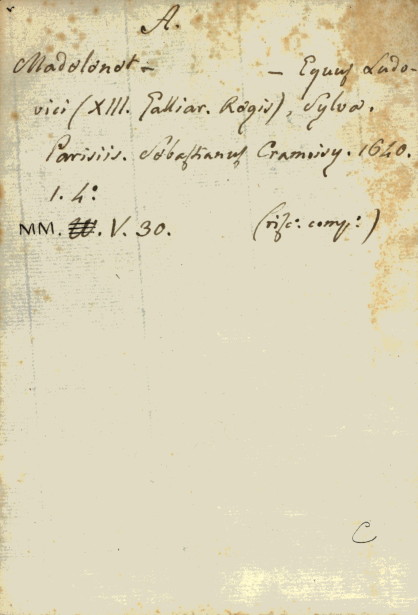 A.
Madelenet – – Equus Ludo-
vici (XIII. Galliar. Regis), Sylva.
Parisiis. Sebastianus Cramoisy. 1640.
1. 4°
MM. V. 30. (risc: comp:)
C